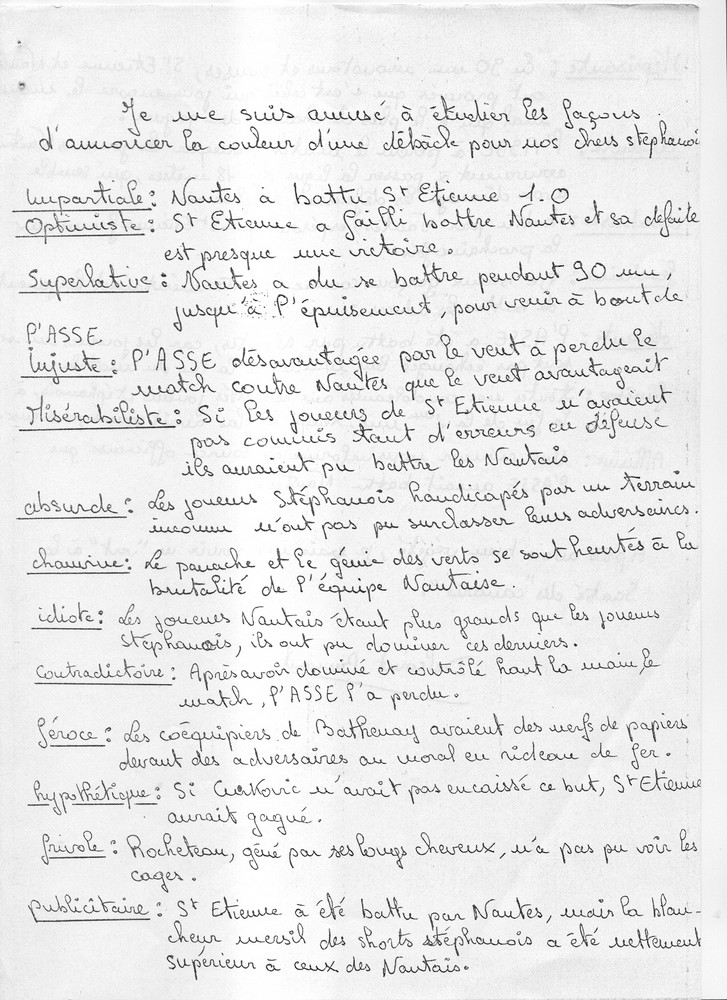 Je me suis amusé à étudier les façons
d'annoncer la couleur d'une débâcle pour nos chers stéphanoi
Impartiale : Nantes à battu St Etienne 1.0
Optimiste : St Etienne a failli battre Nantes et sa défaite
est presque une victoire.
Superlative : Nantes a du se battre pendant 90 mn,
jusqu'à l'épuisement, pour venir à bout de
l'ASSE
Injuste : l'ASSE désavantagée par le vent à perdu le
match contre Nantes que le vent avantageait
Misérabiliste : Si les joueurs de St Etienne n'avaient
pas commis tant d'erreurs en défense
ils auraient pu battre les Nantais
absurde : Les joueurs Stéphanois handicapés par un terrain
inconnu n'ont pas pu surclasser leurs adversaires.
chauvine : Le panache et le génie des verts se sont heurtés à la
brutalité de l'équipe Nantaise.
idiote : Les joueurs Nantais étant plus grands que les joueurs
Stéphanois, ils ont pu dominer ces derniers.
Contradictoire : Après avoir dominé et contrôlé haut la main, le
match, l'ASSE l'a perdu.
féroce : Les coéquipiers de Bathenay avaient des nerfs de papiers
devant des adversaires au moral en rideau de fer.
hypothétique : Si Curkovic n'avait pas encaissé ce but, St Etienne
aurait gagné.
frivole : Rocheteau, géné par ses longs cheveux, n'a pas pu voir les
cages.
publicitaire : St Etienne à été battu par Nantes, mais la blan-
cheur mersil des shorts stéphanois a été nettement
supérieur à ceux des Nantais.